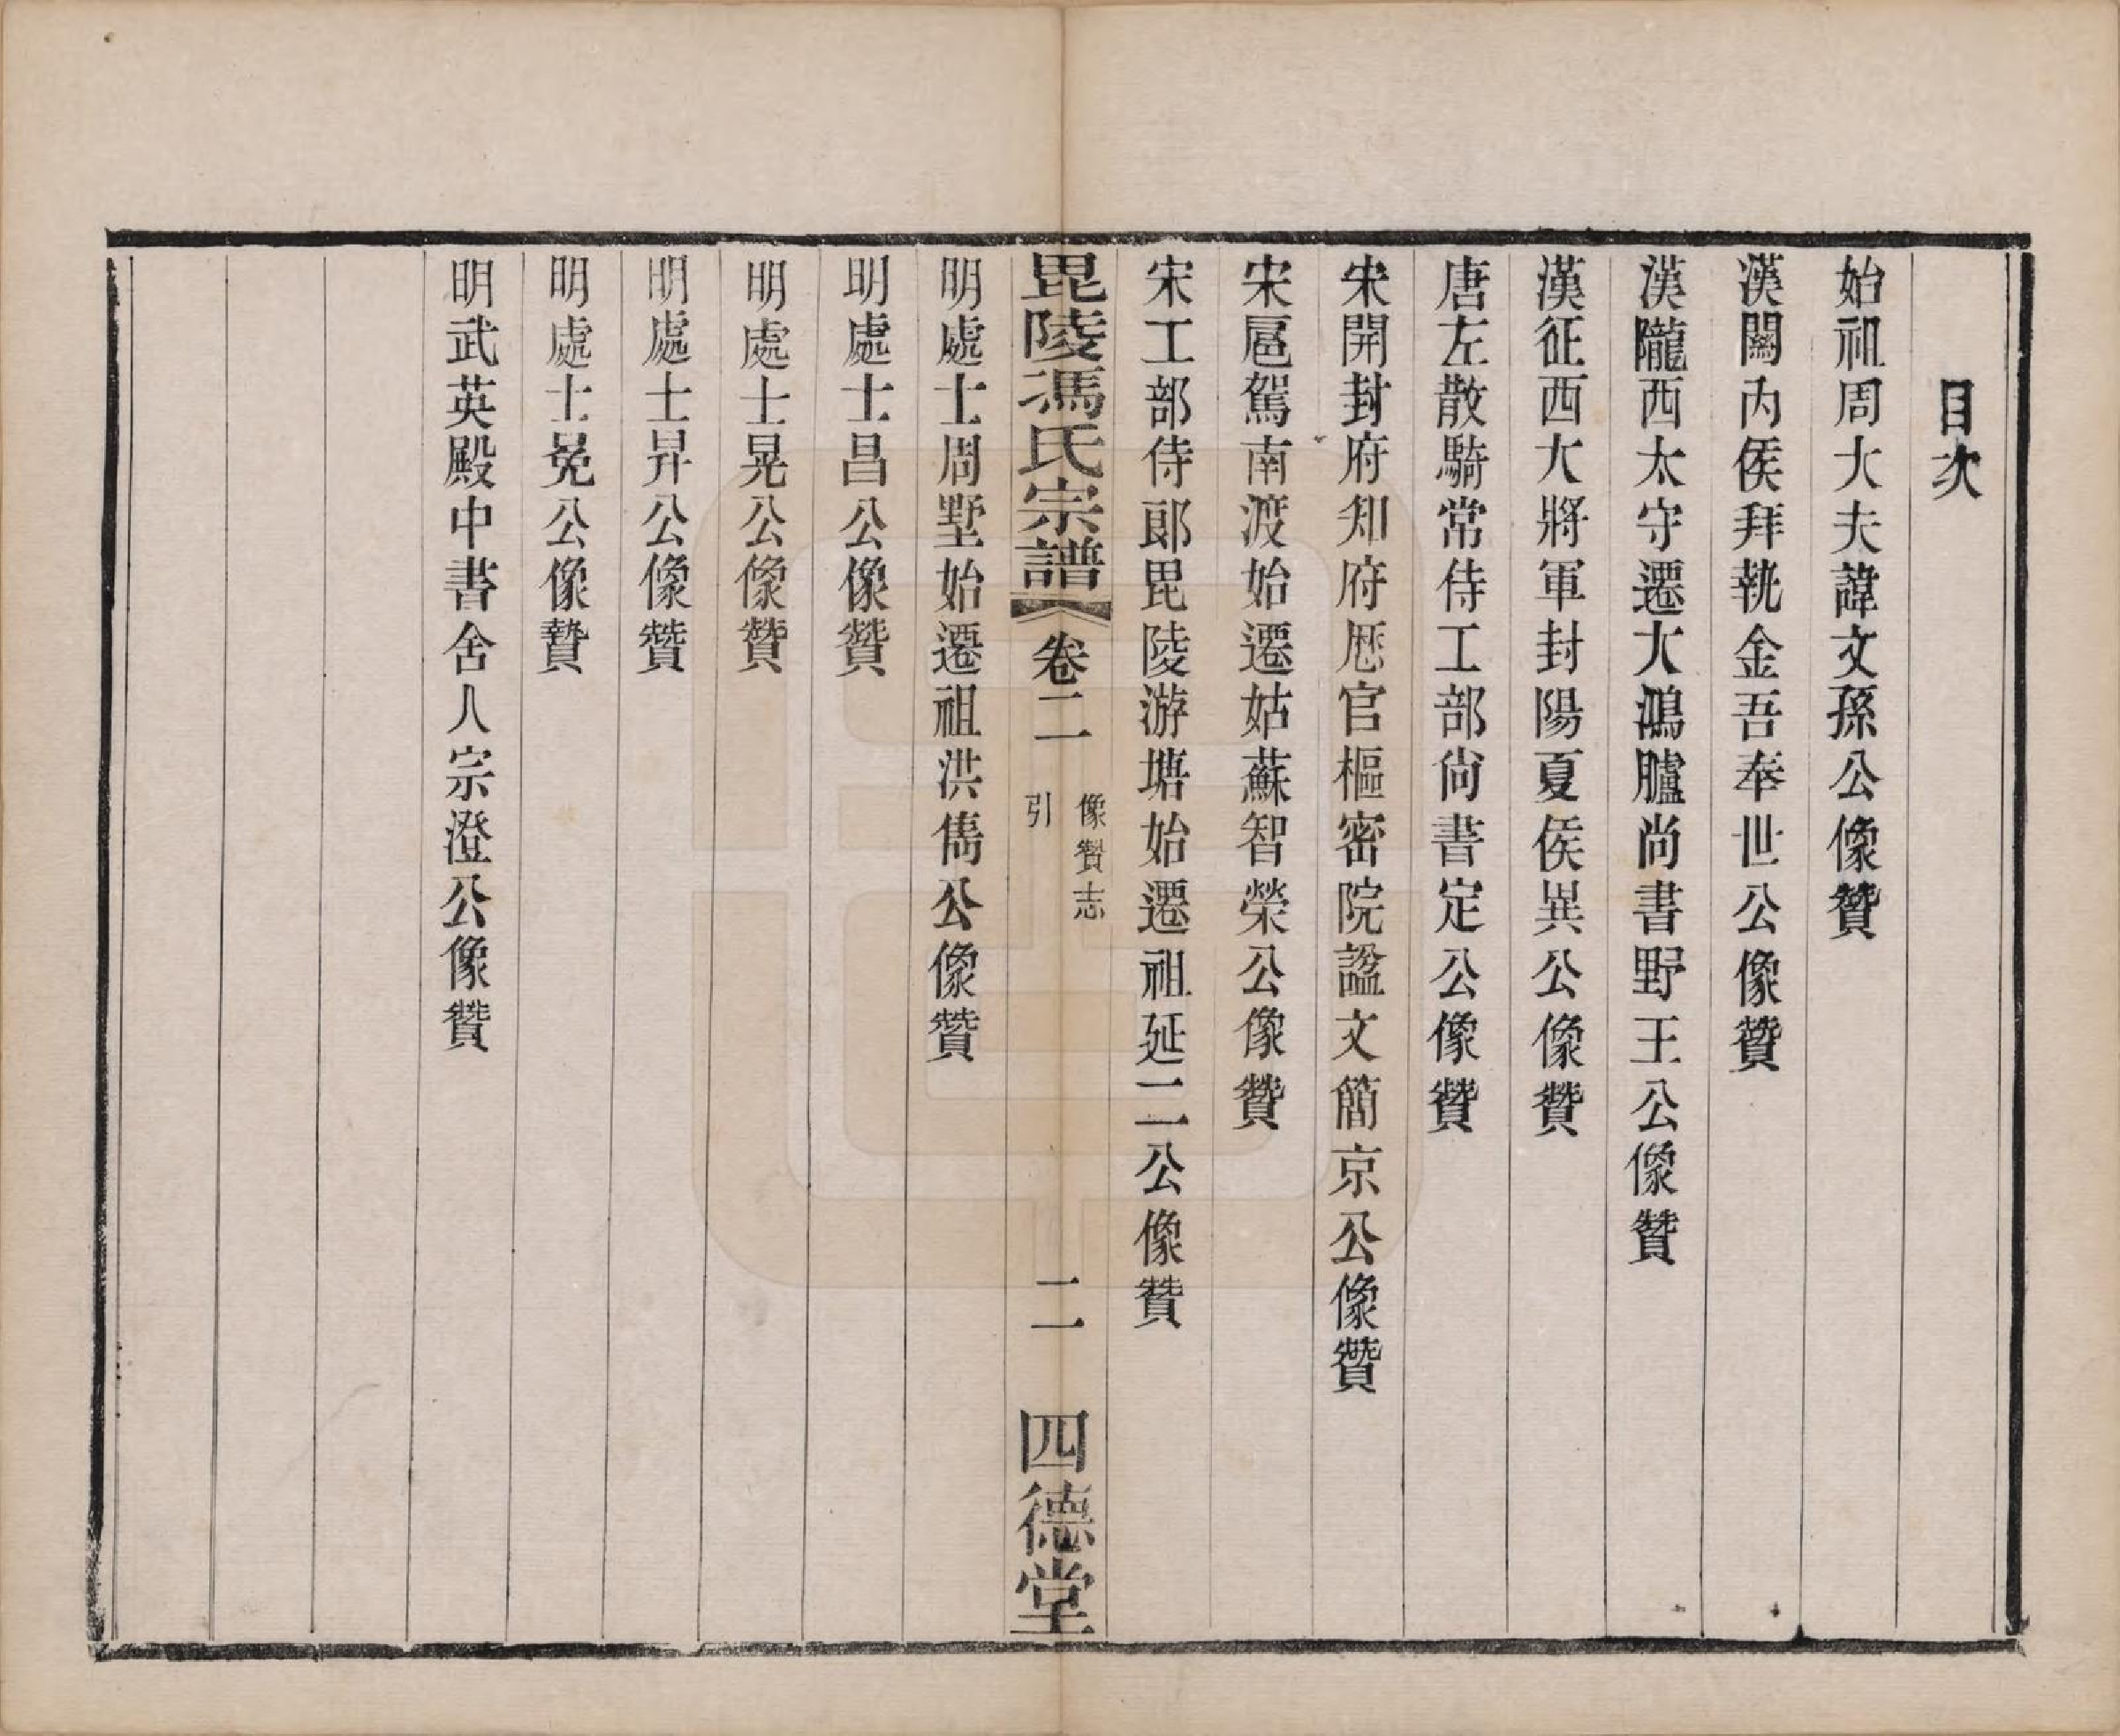 目次
始祖周大夫諱文孫公像贊
漢關內侯拜執金吾奉世公像贊
漢隴西太守遷大鴻臚尚書野王公像贊
漢征西大將軍封陽夏侯異公像贊
唐左散騎常侍工部尚書定公像贊
宋開封府知府歷官樞密院諡文簡京公像贊
宋扈駕南渡始遷姑蘇智榮公像贊
宋工部侍郎毘陵游塘始遷祖延二公像贊
毘陵馮氏宗譜
卷二
像贊志
引
二
四德堂
明處士周墅始遷祖洪儁公像贊
明處士昌公像贊
明處士晃公像贊
明處士昇公像贊
明處士冕公像贊
明武英殿中書舍人宗澄公像贊